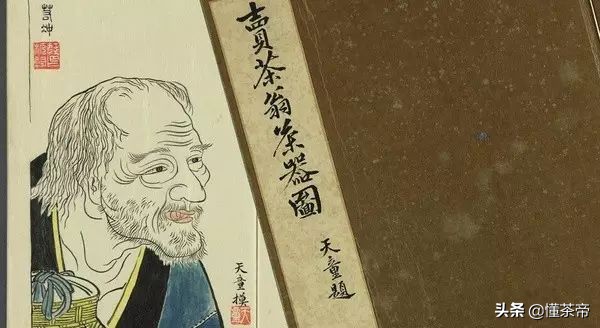 賣茶翁茶器圖
天童題
天童模
头条 @懂茶帝